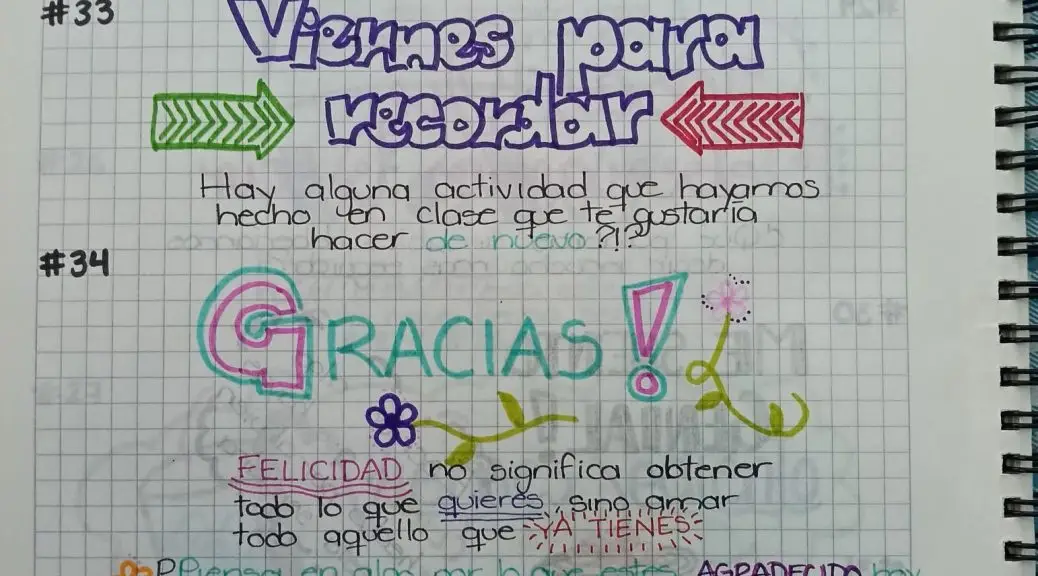 #33
Viernes para
recordar
Hay alguna actividad que hayamos
hecho en clase que te gustaría
hacer de nuevo?!?
#34
GRACIAS!
FELICIDAD no significa obtener
todo lo que quieres, sino amar
todo aquello que YA TIENES
Piensa en algo por lo que estes AGRADECIDO hoy